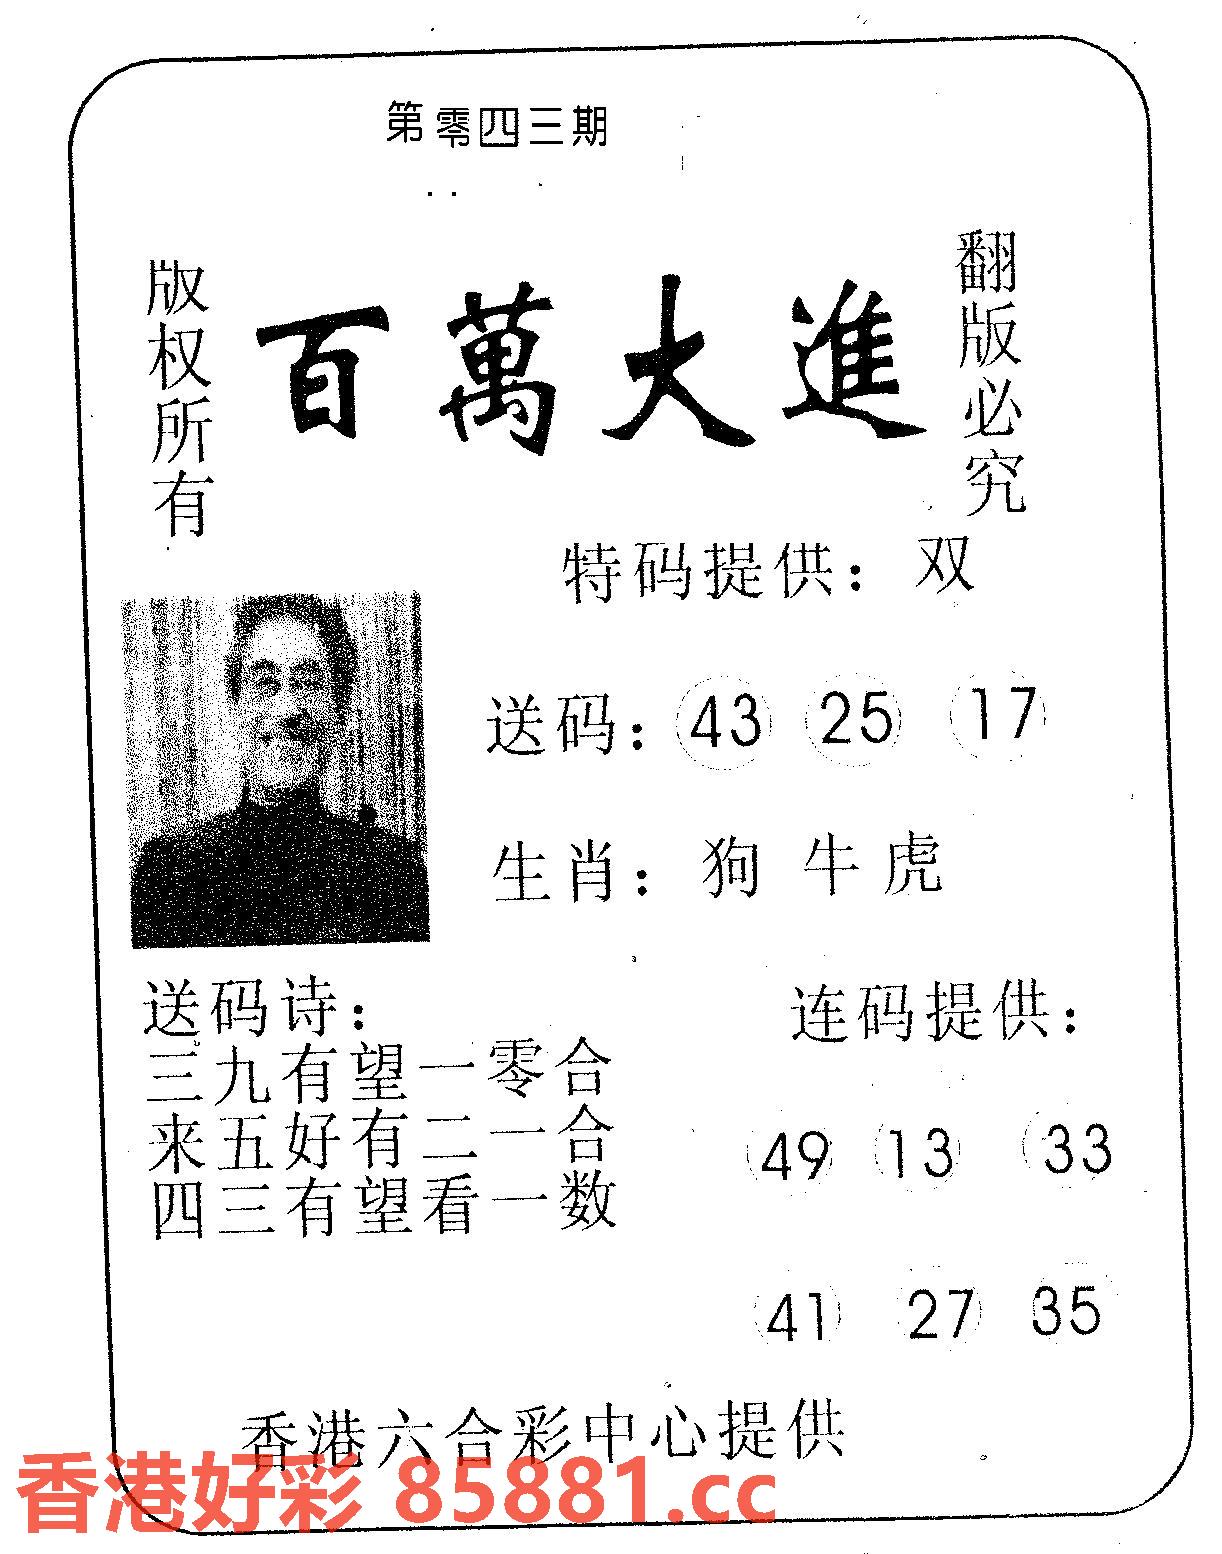 第零四三期
版权所有
百萬大進
翻版必究
特码提供：双
送码：43 25 17
生肖：狗 牛 虎
送码诗：
三九有望一零合
来五好有二一合
四三有望看一数
连码提供：
49 13 33
41 27 35
香港六合彩中心提供
香港好彩 85881.cc